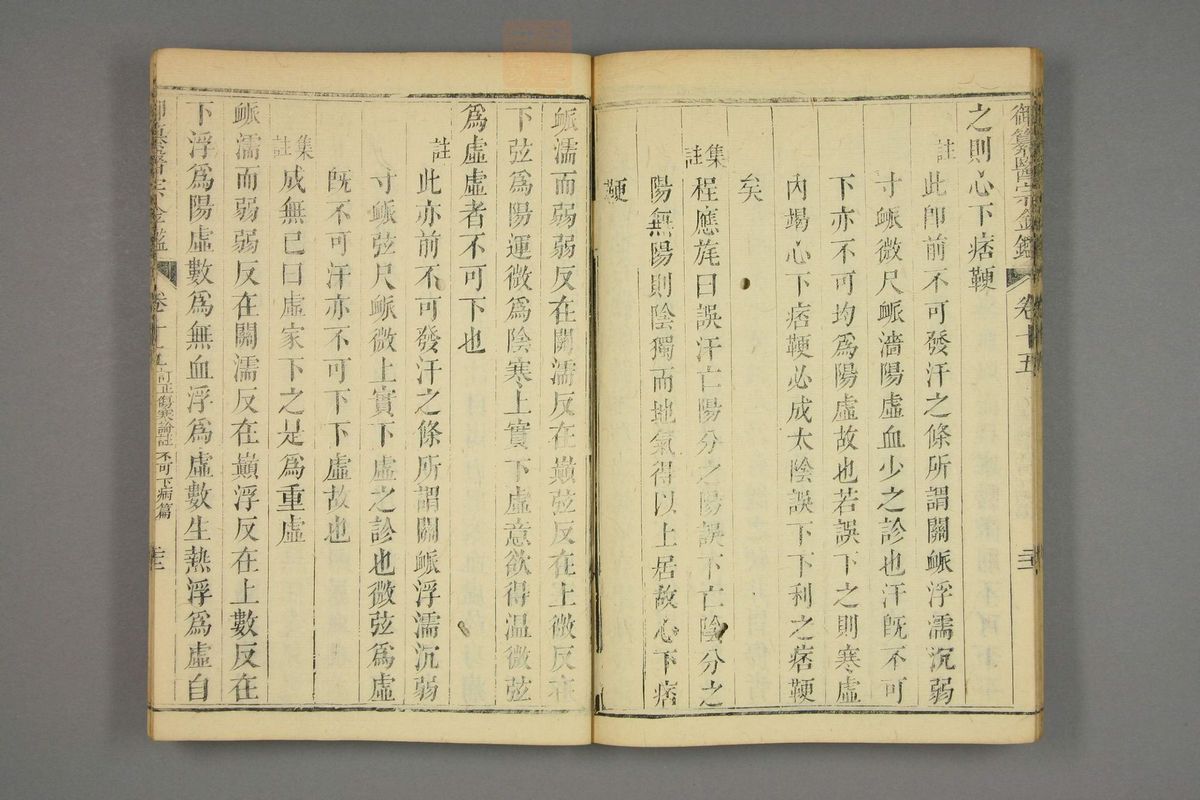 御纂醫宗金鑑 卷十五
之則心下痞鞕
註 此即前不可發汗之條所謂關脈浮濡沉弱
寸脈微尺脈濇陽虛血少之診也汗旣不可
下亦不可均爲陽虛故也若誤下之則寒虛
內竭心下痞鞕必成太陰誤下下利之痞鞕
矣
集註 程應旄曰誤汗亡陽分之陽誤下亡陰分之
陽無陽則陰獨而地氣得以上居故心下痞
鞕
脈濡而弱弱反在關濡反在巔弦反在上微反在
下弦爲陽運微爲陰寒上實下虛意欲得温微弦
爲虛虛者不可下也
註 此亦前不可發汗之條所謂關脈浮濡沉弱
寸脈弦尺脈微上實下虛之診也微弦爲虛
旣不可汗亦不可下下虛故也
集註 成無已曰虛家下之是爲重虛
脈濡而弱弱反在關濡反在巔浮反在上數反在
下浮爲陽虛數爲無血浮爲虛數生熱浮爲虛自
御纂醫宗金鑑 卷十五 訂正傷寒論註 不可下病篇